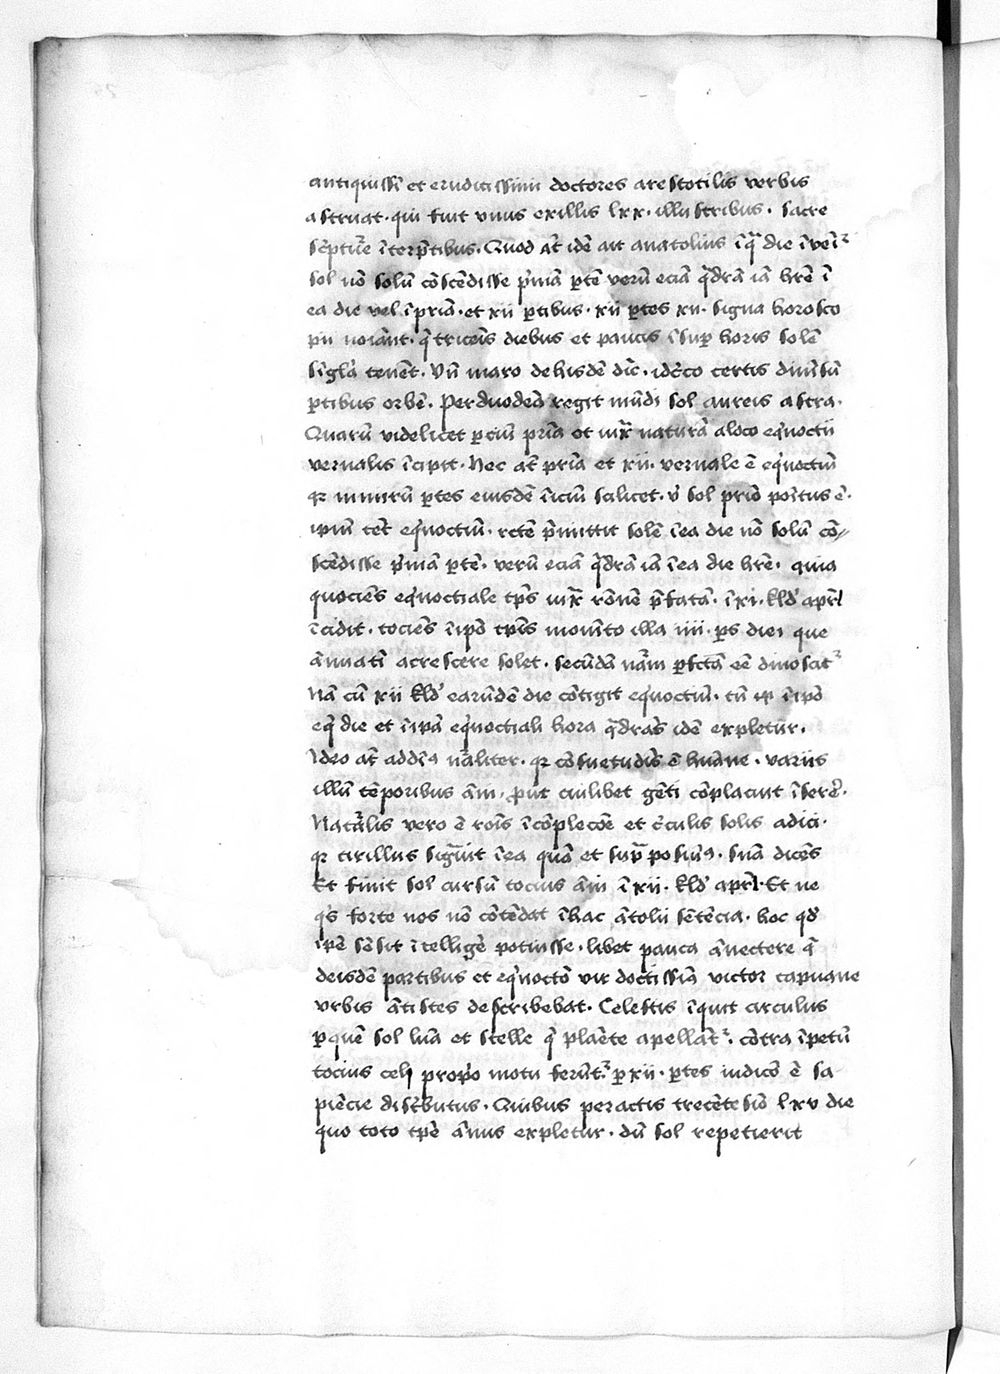 antiquissī et eruditissimi doctores arestotilis verbis
astruat · qui fuit vnus exillis lxx · illustribus · sacre
sc̄ptur̄e īterp̄tibus · Quod at̄ idē ait anatolius īq̄ die īvenit᷑
sol nō solū cōscēdisse p̄mā ꝑtē verū eciā q̄drā iā hr̄e ī
ea die vel īprīa · et xii ꝑtibus · xii ꝑtes xii · signa horosco
pii noiānt · q̄ tricēis diebus et paucis īsuꝑ horis solē
sīgla tenēt · Vn̄ maro dehisdē dīc · idc̄co certis dimēsū
ꝑtibus orbē · Per duodena regit mūdi sol aureis astra ·
Quarū videlicet ꝑciū prīa et iuxͣ naturā aloco eq̇noctii
vernalis īcipit · Nec at̄ prīa et xii · vernale ē eq̇noctiū
qꝛ ꝑtes eiusdē īiciū scilicet · v̇ sol prīo positus ē ·
ipm̄ tēt eq̇noctiū · rc̄te p̄mittit solē īea die nō solū cō-
scēdisse p̄mā ꝑtē · verū eciā q̄drā iā īea die hr̄e · quia
quociēs eq̇noctiale tp̄s iuxͣ rōnē p̄fatā · ī xi · kld̄ apr̄l
īcidit · tociēs īip̄o tp̄is momēto illa iiii · ꝑs diei que
ānuatī acrescere solet · secūdā nām ꝑfctā eē dinoscit᷑
Nā cū xii kld̄ earūdē die cōtigit eq̇noctiū · tū īip̄o
eq̇ die et īip̄a eq̇noctiali hora q̄drās idē expletur ·
Ideo at̄ addīꝰ nāliter · qꝛ cōsuetudīs ē humāne · variis
illū tēporibus āni · ꝓut cuilibet gēti cōplacuit īserē ·
Natālis vero ē rōis īcōplecōe et c̄culis solis adici ·
qꝛ cirillus signīt īea quā et sup̄ posuimꝰ · snīa dicēs
Et finit sol cursū tocius āni ī xii · kld̄ apr̄l · Et ne
q̇s forte nos nō cōtēdat īhac ātolii sētēcia · hoc qd̄
ip̄e sēsit ītelligē potuisse · libet pauca ānectere q̄
deisdē partibus et eq̇noctō vir doctissim̄ victor capuane
vrbis ātistes describebat · Celestis īquit circulus
ꝑquē sol lūa et stelle q̄ planēte apellāt᷑ · cōtra īpetū
tocius celi proprio motu ferūt᷑ ꝑ xii · ꝑtes iudicō ē sa
piēcie distributus · Quibus peractis trecētesīo lxv die
quo toto tp̄e ānus expletur · dū sol repetierit